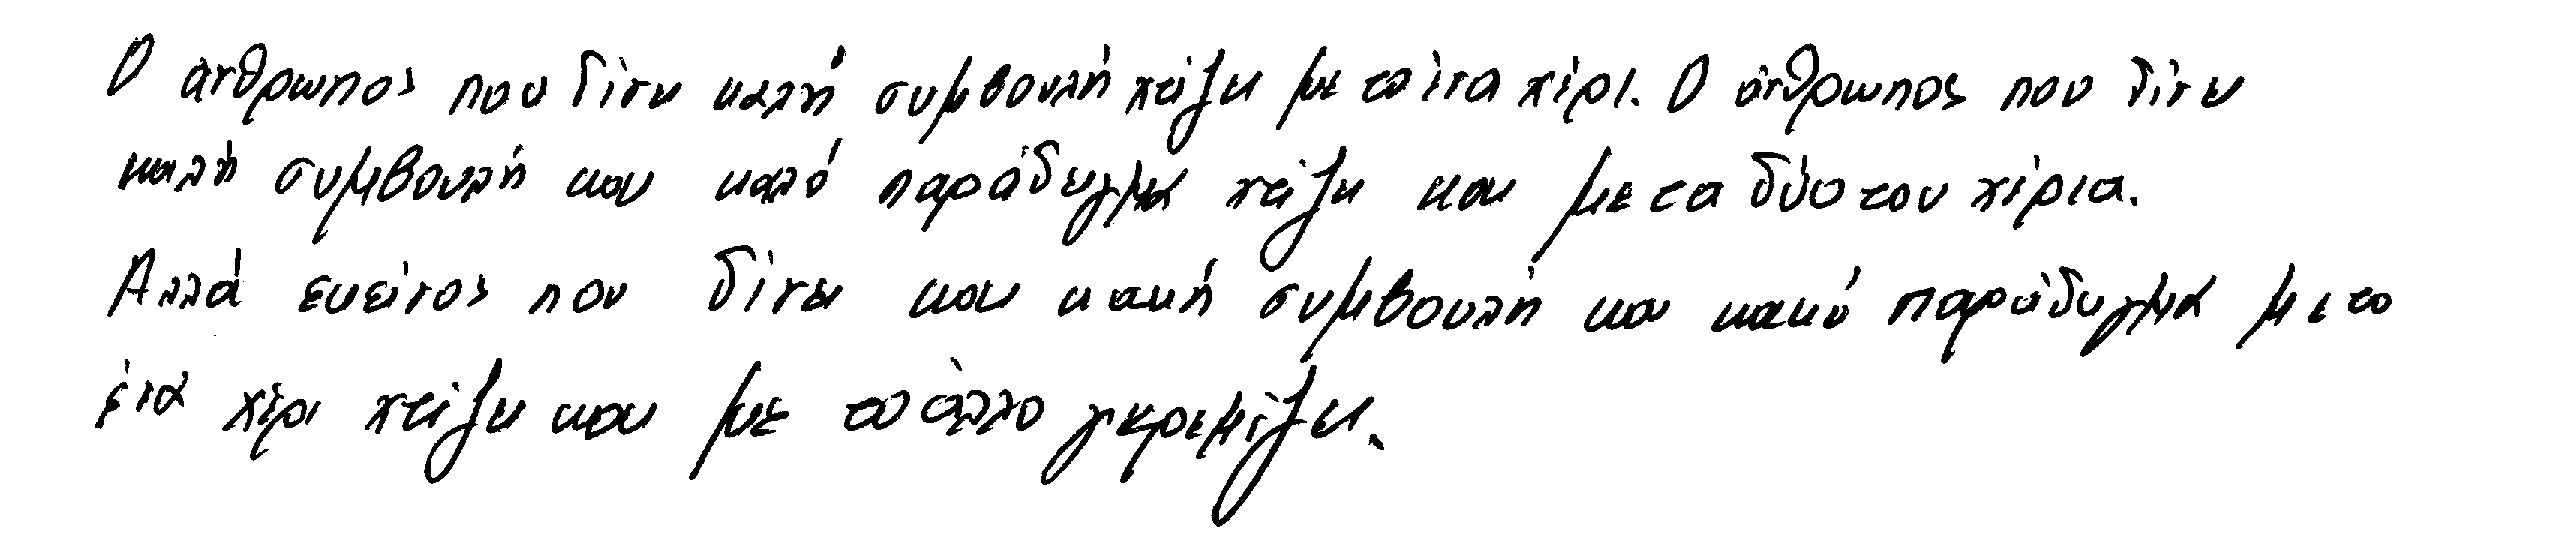 Ο άνθρωπος που δίνει καλή συμβουλή χτίζει με το ένα χέρι. Ο άνθρωπος που δίνει
καλή συμβουλή και καλό παράδειγμα χτίζει και με τα δύο του χέρια.
Αλλά εκείνος που δίνει και κακή συμβουλή και κακό παράδειγμα με το
ένα χέρι χτίζει και με το άλλο γκρεμίζει.